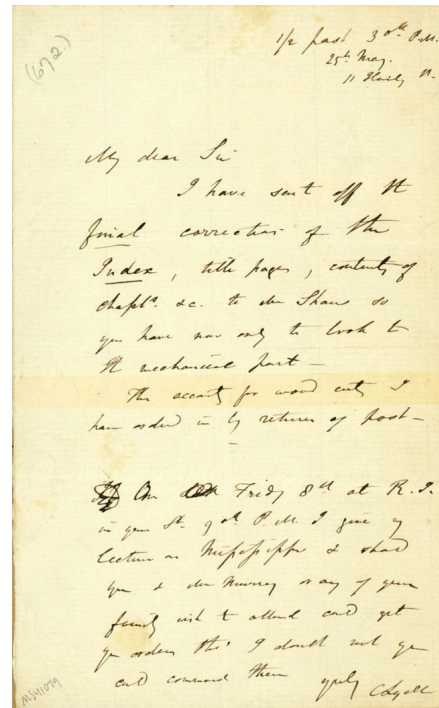 (672.)
1/2 past 3 P.M.
25th May.
11 Harley St.
My dear Sir
I have sent off the
final correction of the
Index, title pages, contents of
chaptrs. &c. to Mr Shaw so
you have now only to look to
the mechanical part —
The accounts for wood cuts I
have ordered in by return of post —
On Friday 8th at R.I.
in your St. 9 oh. P.M. I give my
lecture on Mississippi & shd
you & Mrs Murray or any of your
family wish to attend could get
you orders tho' I doubt not you
could command them
yrs truly C Lyell
MS41079